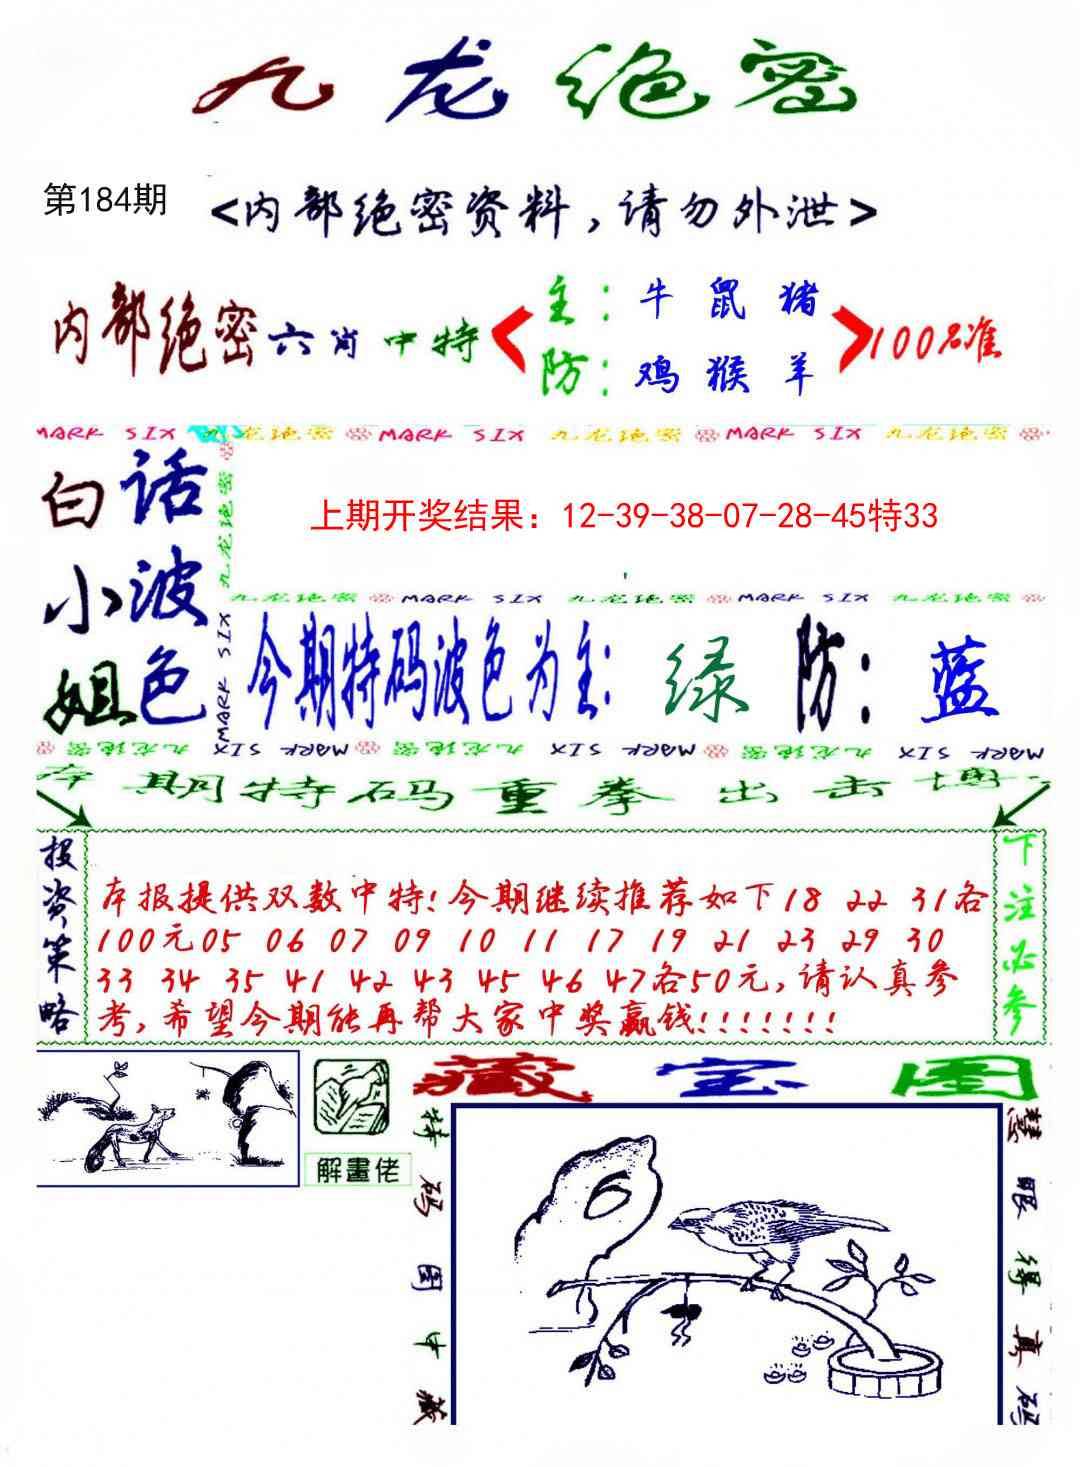 九龙绝密
第184期
<内部绝密资料,请勿外泄>
内部绝密六肖中特
主:牛 鼠 猪
防:鸡 猴 羊
100%准
MARK SIX 九龙绝密 MARK SIX 九龙绝密 MARK SIX 九龙绝密
白话
小波
姐色
九龙绝密
MARK SIX
上期开奖结果：12-39-38-07-28-45特33
九龙绝密 MARK SIX 九龙绝密 MARK SIX 九龙绝密
今期特码波色为主:绿 防:蓝
九龙绝密 MARK SIX 九龙绝密 MARK SIX 九龙绝密 MARK SIX
本期特码重拳出击博
投资策略
本报提供双数中特!今期继续推荐如下18 22 31各
100元05 06 07 09 10 11 17 19 21 23 29 30
33 34 35 41 42 43 45 46 47各50元,请认真参
考,希望今期能再帮大家中奖赢钱!!!!!!!
下注必参
解畫佬
藏宝图
特码图中藏
慧眼得真码